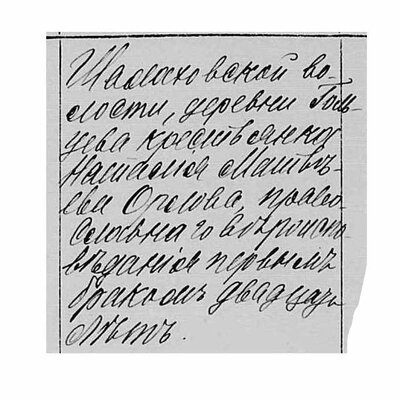 Шамаховской во-
лости, деревни Голь-
цева крестьянка
Наталия Матвѣ-
ева Орлова, право-
славнаго вѣроиспо-
вѣдания первымъ
бракомъ двадцать
лѣтъ.